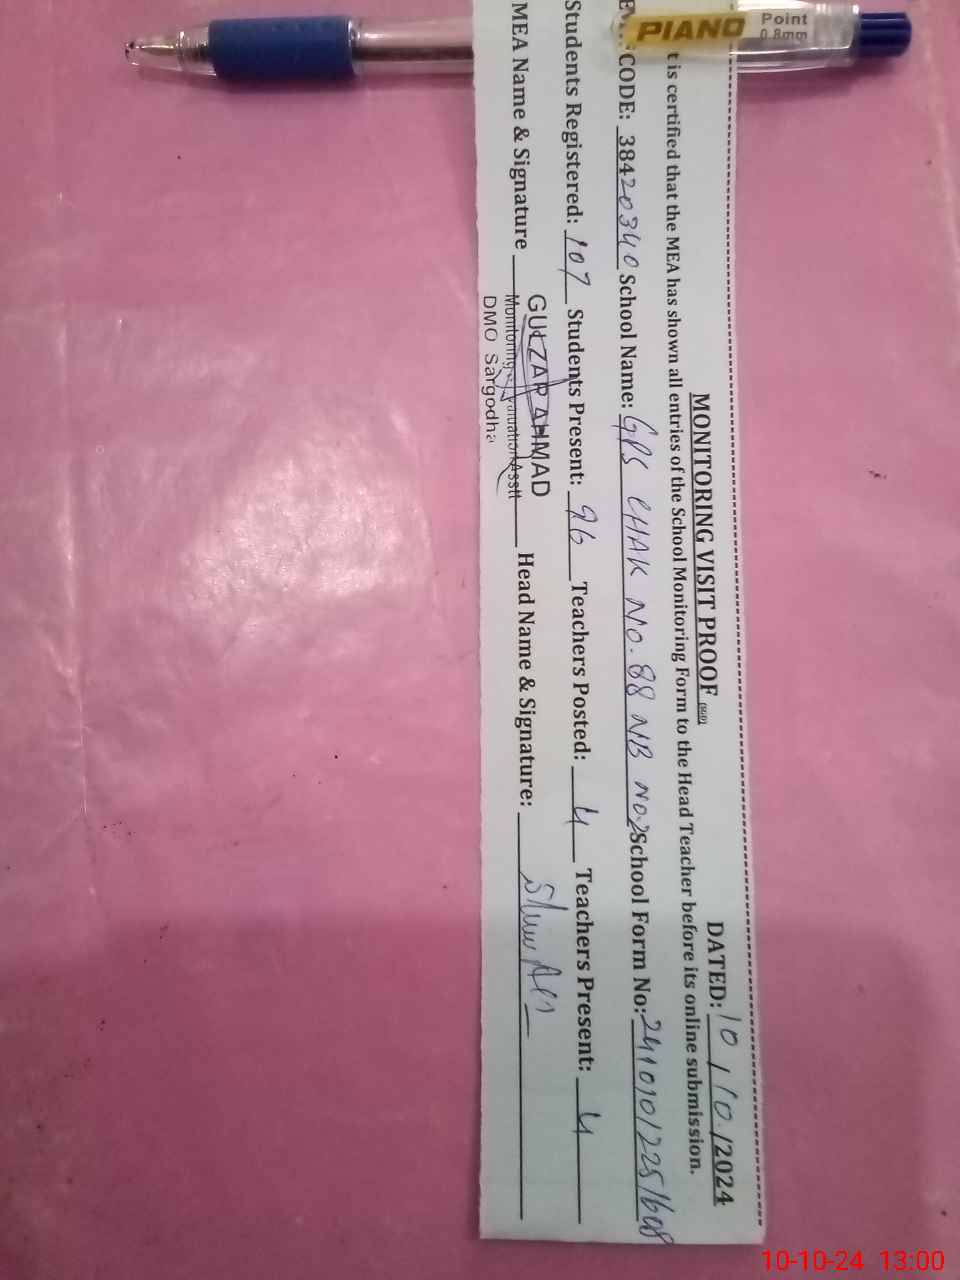 MONITORING VISIT PROOF DATED: 10/10/2024
t is certified that the MEA has shown all entries of the School Monitoring Form to the Head Teacher before its online submission.
CODE: 38420340 School Name: GPS CHAK NO. 88 NB NO.2 School Form No:
Students Registered: 107 Students Present: 96 Teachers Posted: 4 Teachers Present: 4
MEA Name & Signature GULZAR AHMAD Head Name & Signature:
Monitoring Evaluation Asstt
DMO Sargodha
PIANO Point
0.8mm
10-10-24 13:00